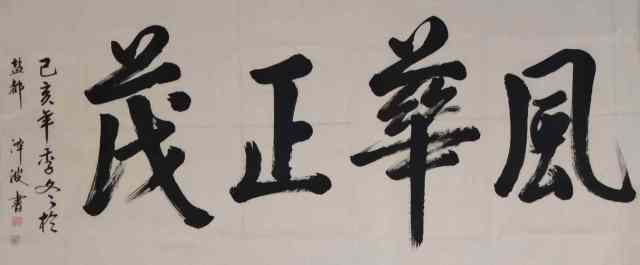 風華正茂
己亥年季冬於
盐都 津波書